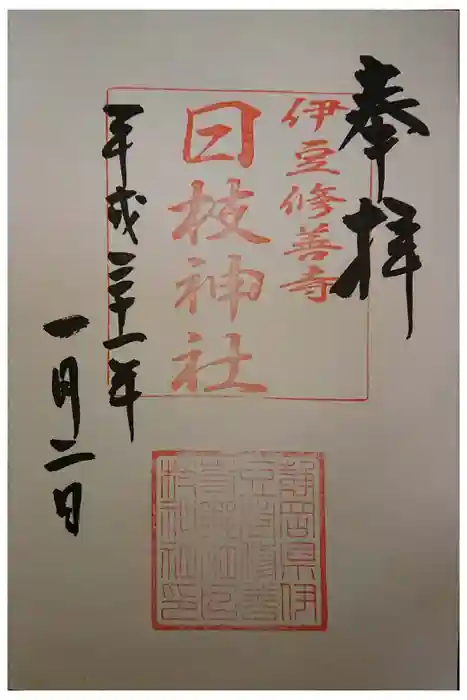 奉拝
伊豆修善寺
日枝神社
平成三十一年
一月二日
静岡県伊
豆市修善
枝神社印